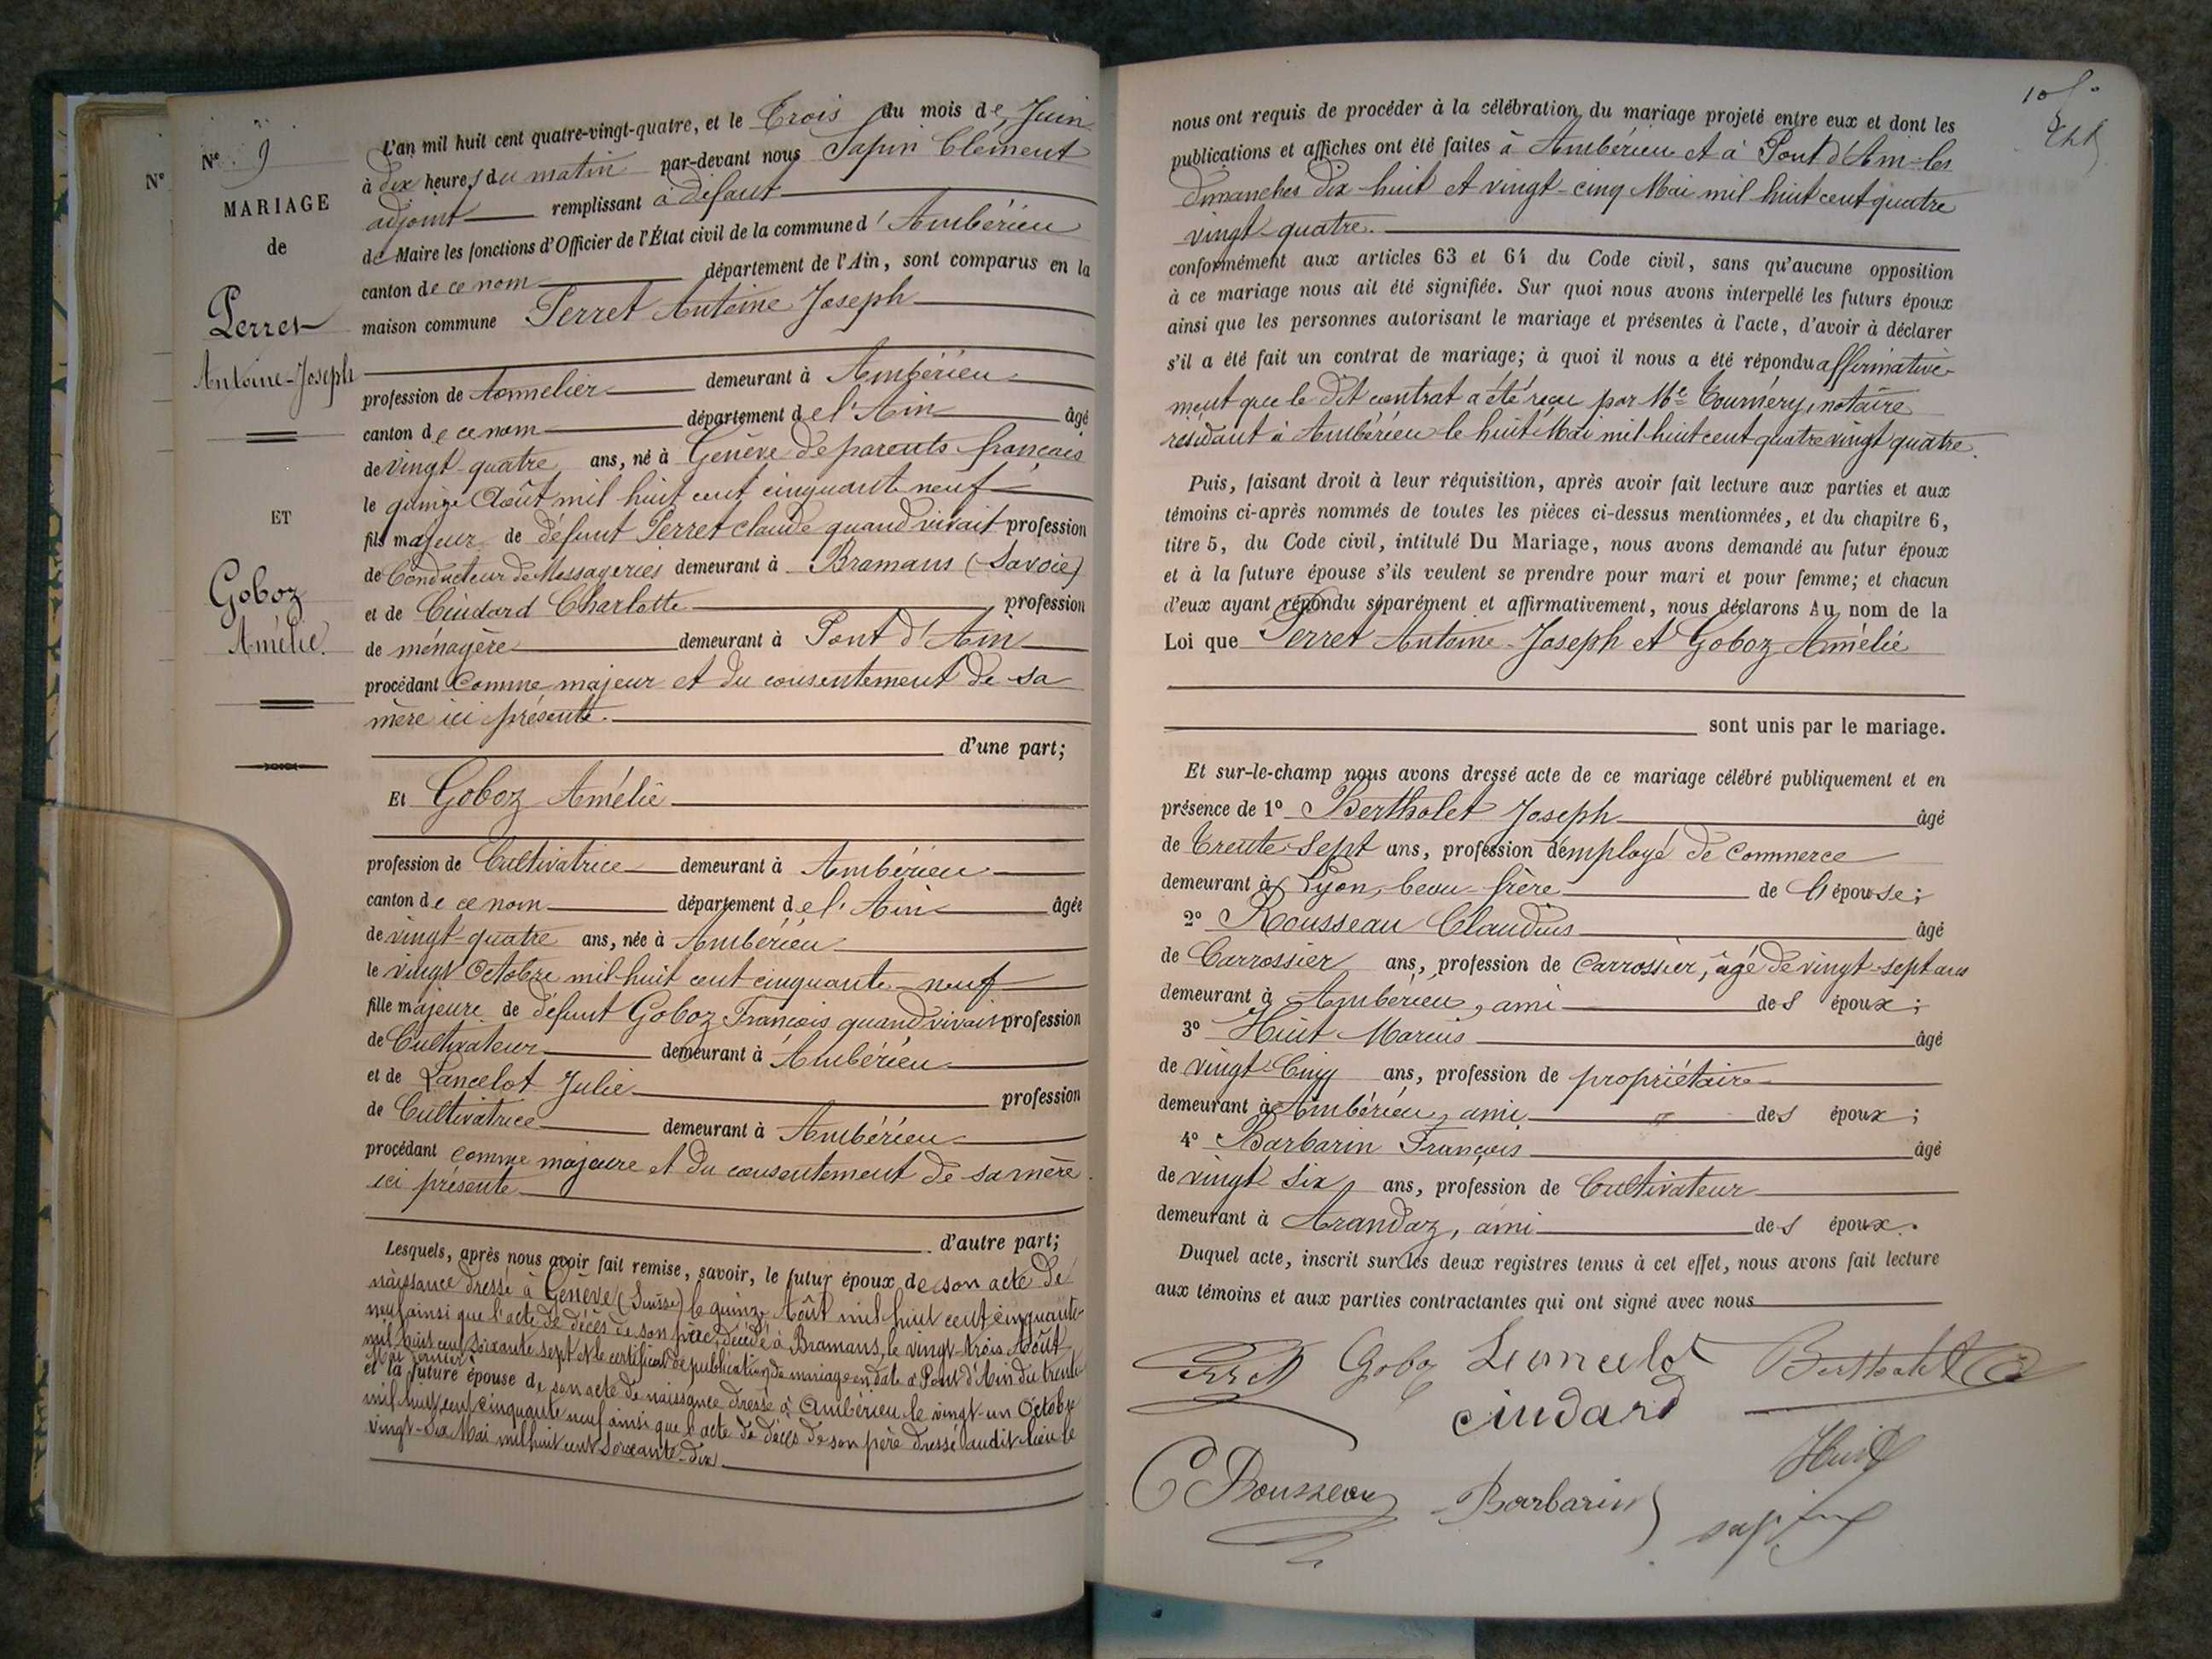 N°
N° 9
MARIAGE
de
Perret
Antoine-Joseph
ET
Goboz
Amélie.
L'an mil huit cent quatre-vingt-quatre, et le Trois du mois de Juin
à dix heures du matin par-devant nous Sapin Clément
adjoint remplissant à défaut
de Maire les fonctions d'Officier de l'État civil de la commune d'Ambérieu
canton de ce nom département de l'Ain, sont comparus en la
maison commune Perret Antoine Joseph
profession de tonnelier demeurant à Ambérieu
canton de ce nom département de l'Ain âgé
de vingt-quatre ans, né à Genève de parents français
le quinze Août mil huit cent cinquante neuf
fils majeur de défunt Perret Claude quand vivait profession
de Conducteur de Messageries demeurant à Bramans (Savoie)
et de Cindard Charlotte profession
de ménagère demeurant à Pont d'Ain
procédant comme majeur et du consentement de sa
mère ici présente.
d'une part;
Et Goboz Amélie
profession de Cultivatrice demeurant à Ambérieu
canton de ce nom département de l'Ain âgée
de vingt-quatre ans, née à Ambérieu
le vingt Octobre mil huit cent cinquante-neuf
fille majeure de défunt Goboz François quand vivait profession
de Cultivateur demeurant à Ambérieu
et de Lancelot Julie profession
de Cultivatrice demeurant à Ambérieu
procédant comme majeure et du consentement de sa mère
ici présente
d'autre part;
Lesquels, après nous avoir fait remise, savoir, le futur époux de son acte de
naissance dressé à Genève (Suisse) le quinze Août mil huit cent cinquante-
neuf ainsi que l'acte de décès de son père, décédé à Bramans, le vingt-trois Août
mil huit cent soixante sept et le certificat de publication de mariage en date à Pont d'Ain du trente
Mai dernier
et la future épouse de son acte de naissance dressé à Ambérieu le vingt-un Octobre
mil huit cent cinquante neuf ainsi que l'acte de décès de son père dressé audit lieu le
vingt-six Mai mil huit cent soixante-dix
105
nous ont requis de procéder à la célébration du mariage projeté entre eux et dont les
publications et affiches ont été faites à Ambérieu et à Pont d'Ain les
dimanches dix-huit et vingt-cinq Mai mil huit cent quatre
vingt-quatre.
conformément aux articles 63 et 64 du Code civil, sans qu'aucune opposition
à ce mariage nous ait été signifiée. Sur quoi nous avons interpellé les futurs époux
ainsi que les personnes autorisant le mariage et présentes à l'acte, d'avoir à déclarer
s'il a été fait un contrat de mariage; à quoi il nous a été répondu affirmative-
ment que le dit contrat a été reçu par Me Tournéry, notaire
résidant à Ambérieu le huit Mai mil huit cent quatre vingt quatre.
Puis, faisant droit à leur réquisition, après avoir fait lecture aux parties et aux
témoins ci-après nommés de toutes les pièces ci-dessus mentionnées, et du chapitre 6,
titre 5, du Code civil, intitulé Du Mariage, nous avons demandé au futur époux
et à la future épouse s'ils veulent se prendre pour mari et pour femme; et chacun
d'eux ayant répondu séparément et affirmativement, nous déclarons Au nom de la
Loi que Perret Antoine-Joseph et Goboz Amélie
sont unis par le mariage.
Et sur-le-champ nous avons dressé acte de ce mariage célébré publiquement et en
présence de 1° Bertholet Joseph âgé
de Trente-sept ans, profession d'employé de Commerce
demeurant à Lyon, beau-frère de l'épouse;
2° Rousseau Claudius âgé
de Carrossier ans, profession de Carrossier, âgé de vingt-sept ans
demeurant à Ambérieu, ami des époux;
3° Huit Marius âgé
de vingt-Cinq ans, profession de propriétaire
demeurant à Ambérieu, ami des époux;
4° Barbarin François âgé
de vingt six ans, profession de Cultivateur
demeurant à Arandaz, ami des époux.
Duquel acte, inscrit sur les deux registres tenus à cet effet, nous avons fait lecture
aux témoins et aux parties contractantes qui ont signé avec nous
Perret Goboz Lancelot Bertholet
Cindard
C Rousseau Barbarin Huit
Sapin